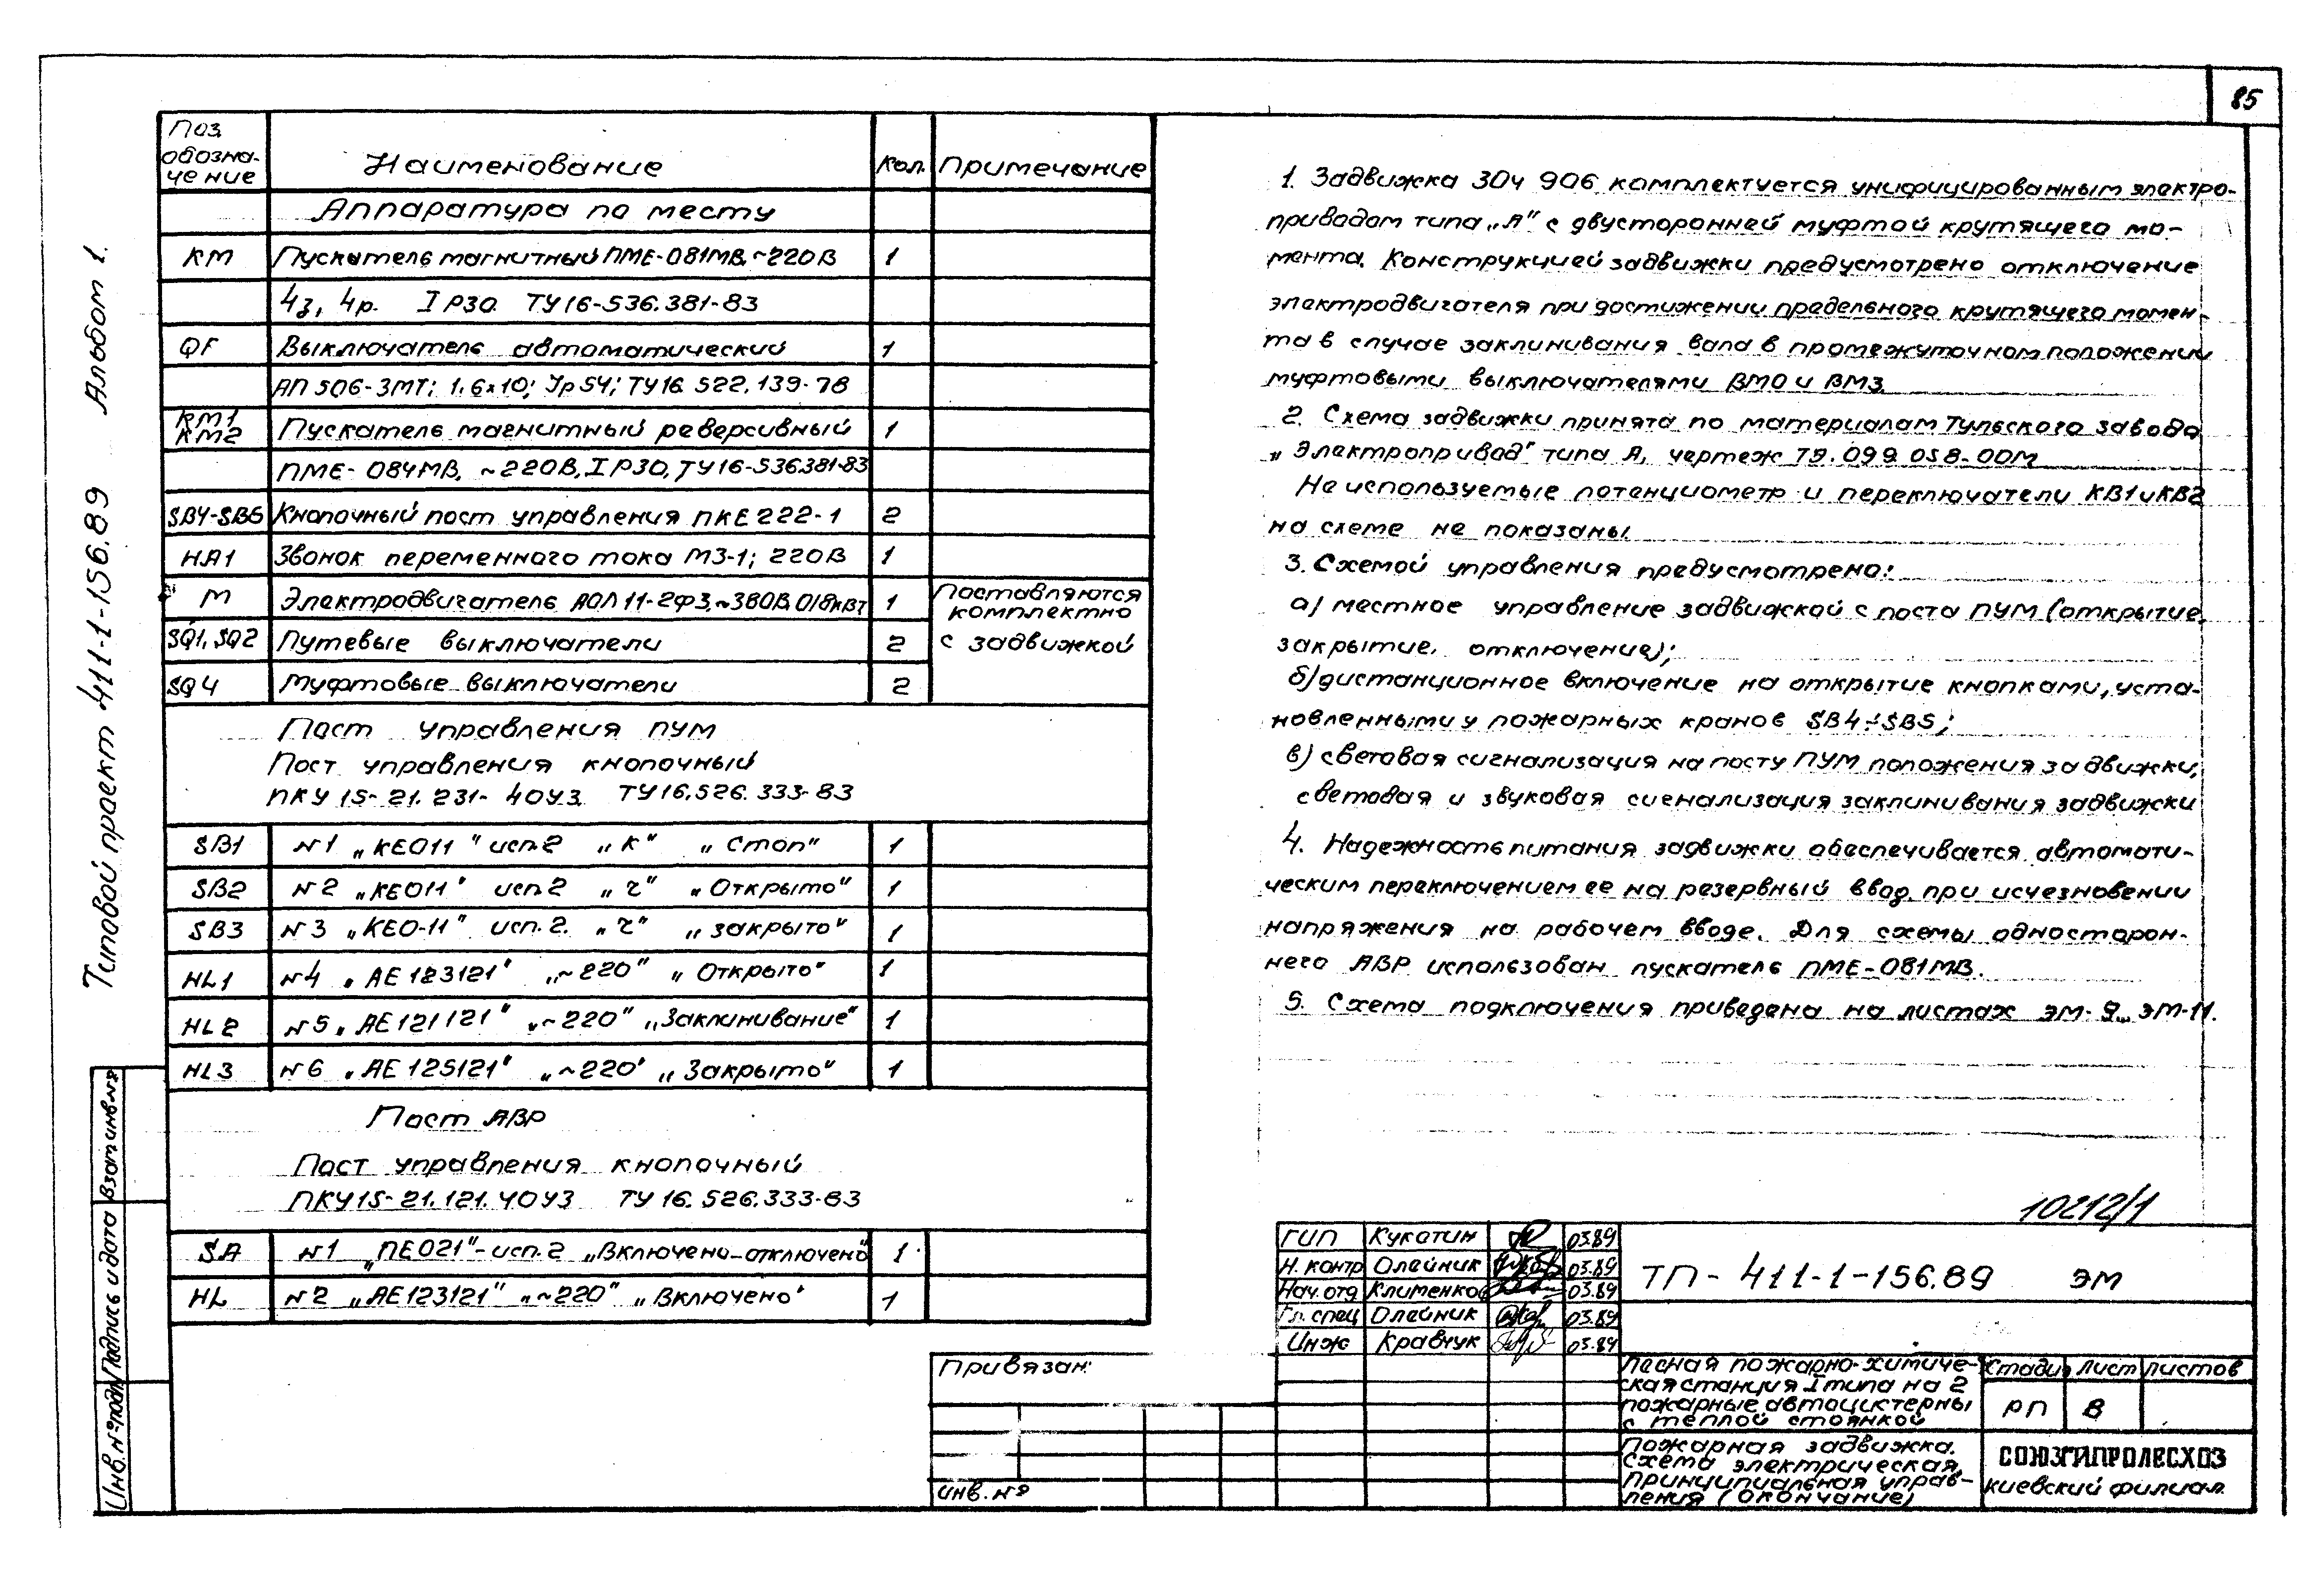 85
Типовой проект 411-1-156.89 Альбом 1.
Поз. обозна- чение | Наименование | Кол. | Примечание
Аппаратура по месту
КМ | Пускатель магнитный ПМЕ-081МВ, ~220В | 1
4з, 4р. IP30 ТУ16-536.381-83
QF | Выключатель автоматический | 1
АП50Б-3МТ; 1,6х10; Ур54; ТУ16.522.139-78
КМ1 КМ2 | Пускатель магнитный реверсивный | 1
ПМЕ-084МВ, ~220В, IP30, ТУ16-536.381-83
SB4-SB5 | Кнопочный пост управления ПКЕ222-1 | 2
НА1 | Звонок переменного тока МЗ-1; 220В | 1
М | Электродвигатель АОЛ11-2Ф3, ~380В, 0,18кВт | 1 | Поставляются комплектно
SQ1, SQ2 | Путевые выключатели | 2 | с задвижкой
SQ4 | Муфтовые выключатели | 2
Пост управления ПУМ
Пост управления кнопочный
ПКУ15-21.231-40У3 ТУ16.526.333-83
SB1 | №1 „КЕ011" исп.2 „К" „Стоп" | 1
SB2 | №2 „КЕ011" исп.2 „ч" „Открыто" | 1
SB3 | №3 „КЕО-11" исп.2. „ч" „закрыто" | 1
HL1 | №4 „АЕ123121" „~220" „Открыто" | 1
HL2 | №5 „АЕ121121" „~220" „Заклинивание" | 1
HL3 | №6 „АЕ125121" „~220" „Закрыто" | 1
Пост АВР
Пост управления кнопочный
ПКУ15-21.121.40У3 ТУ16.526.333-83
SA | №1 „ПЕ021"-исп.2 „Включено-отключено" | 1
HL | №2 „АЕ123121" „~220" „Включено" | 1
1. Задвижка 30ч 906 комплектуется унифицированным электро-
приводом типа „А" с двусторонней муфтой крутящего мо-
мента. Конструкцией задвижки предусмотрено отключение
электродвигателя при достижении предельного крутящего момен-
та в случае заклинивания вала в промежуточном положении
муфтовыми выключателями ВМО и ВМЗ.
2. Схема задвижки принята по материалам Тульского завода
„Электропривод" типа А, чертеж ТЭ.099.058-00М
Не используемые потенциометр и переключатели КВ1 и КВ2
на схеме не показаны.
3. Схемой управления предусмотрено:
а) местное управление задвижкой с поста ПУМ (открытие,
закрытие, отключение);
б) дистанционное включение на открытие кнопками, уста-
новленными у пожарных кранов SB4÷SB5;
в) световая сигнализация на посту ПУМ положения задвижки,
световая и звуковая сигнализация заклинивания задвижки
4. Надежность питания задвижки обеспечивается автомати-
ческим переключением ее на резервный ввод при исчезновении
напряжения на рабочем вводе. Для схемы односторон-
него АВР использован пускатель ПМЕ-081МВ.
5. Схема подключения приведена на листах ЭМ-9... ЭМ-11.
10212/1
ГИП | Кукотин | 03.89
Н. контр | Олейник | 03.89
Нач. отд | Клименко | 03.89
Гл. спец | Олейник | 03.89
Инж | Кравчук | 03.89
ТП-411-1-156.89 ЭМ
Лесная пожарно-химиче-
ская станция I типа на 2
пожарные автоцистерны
с теплой стоянкой
Стадия | Лист | Листов
РП | 8
Пожарная задвижка.
Схема электрическая
принципиальная управ-
ления (окончание)
СОЮЗГИПРОЛЕСХОЗ
Киевский филиал
Привязан:
Инв. №
Взам инв.№
Подпись и дата
Инв. № подл